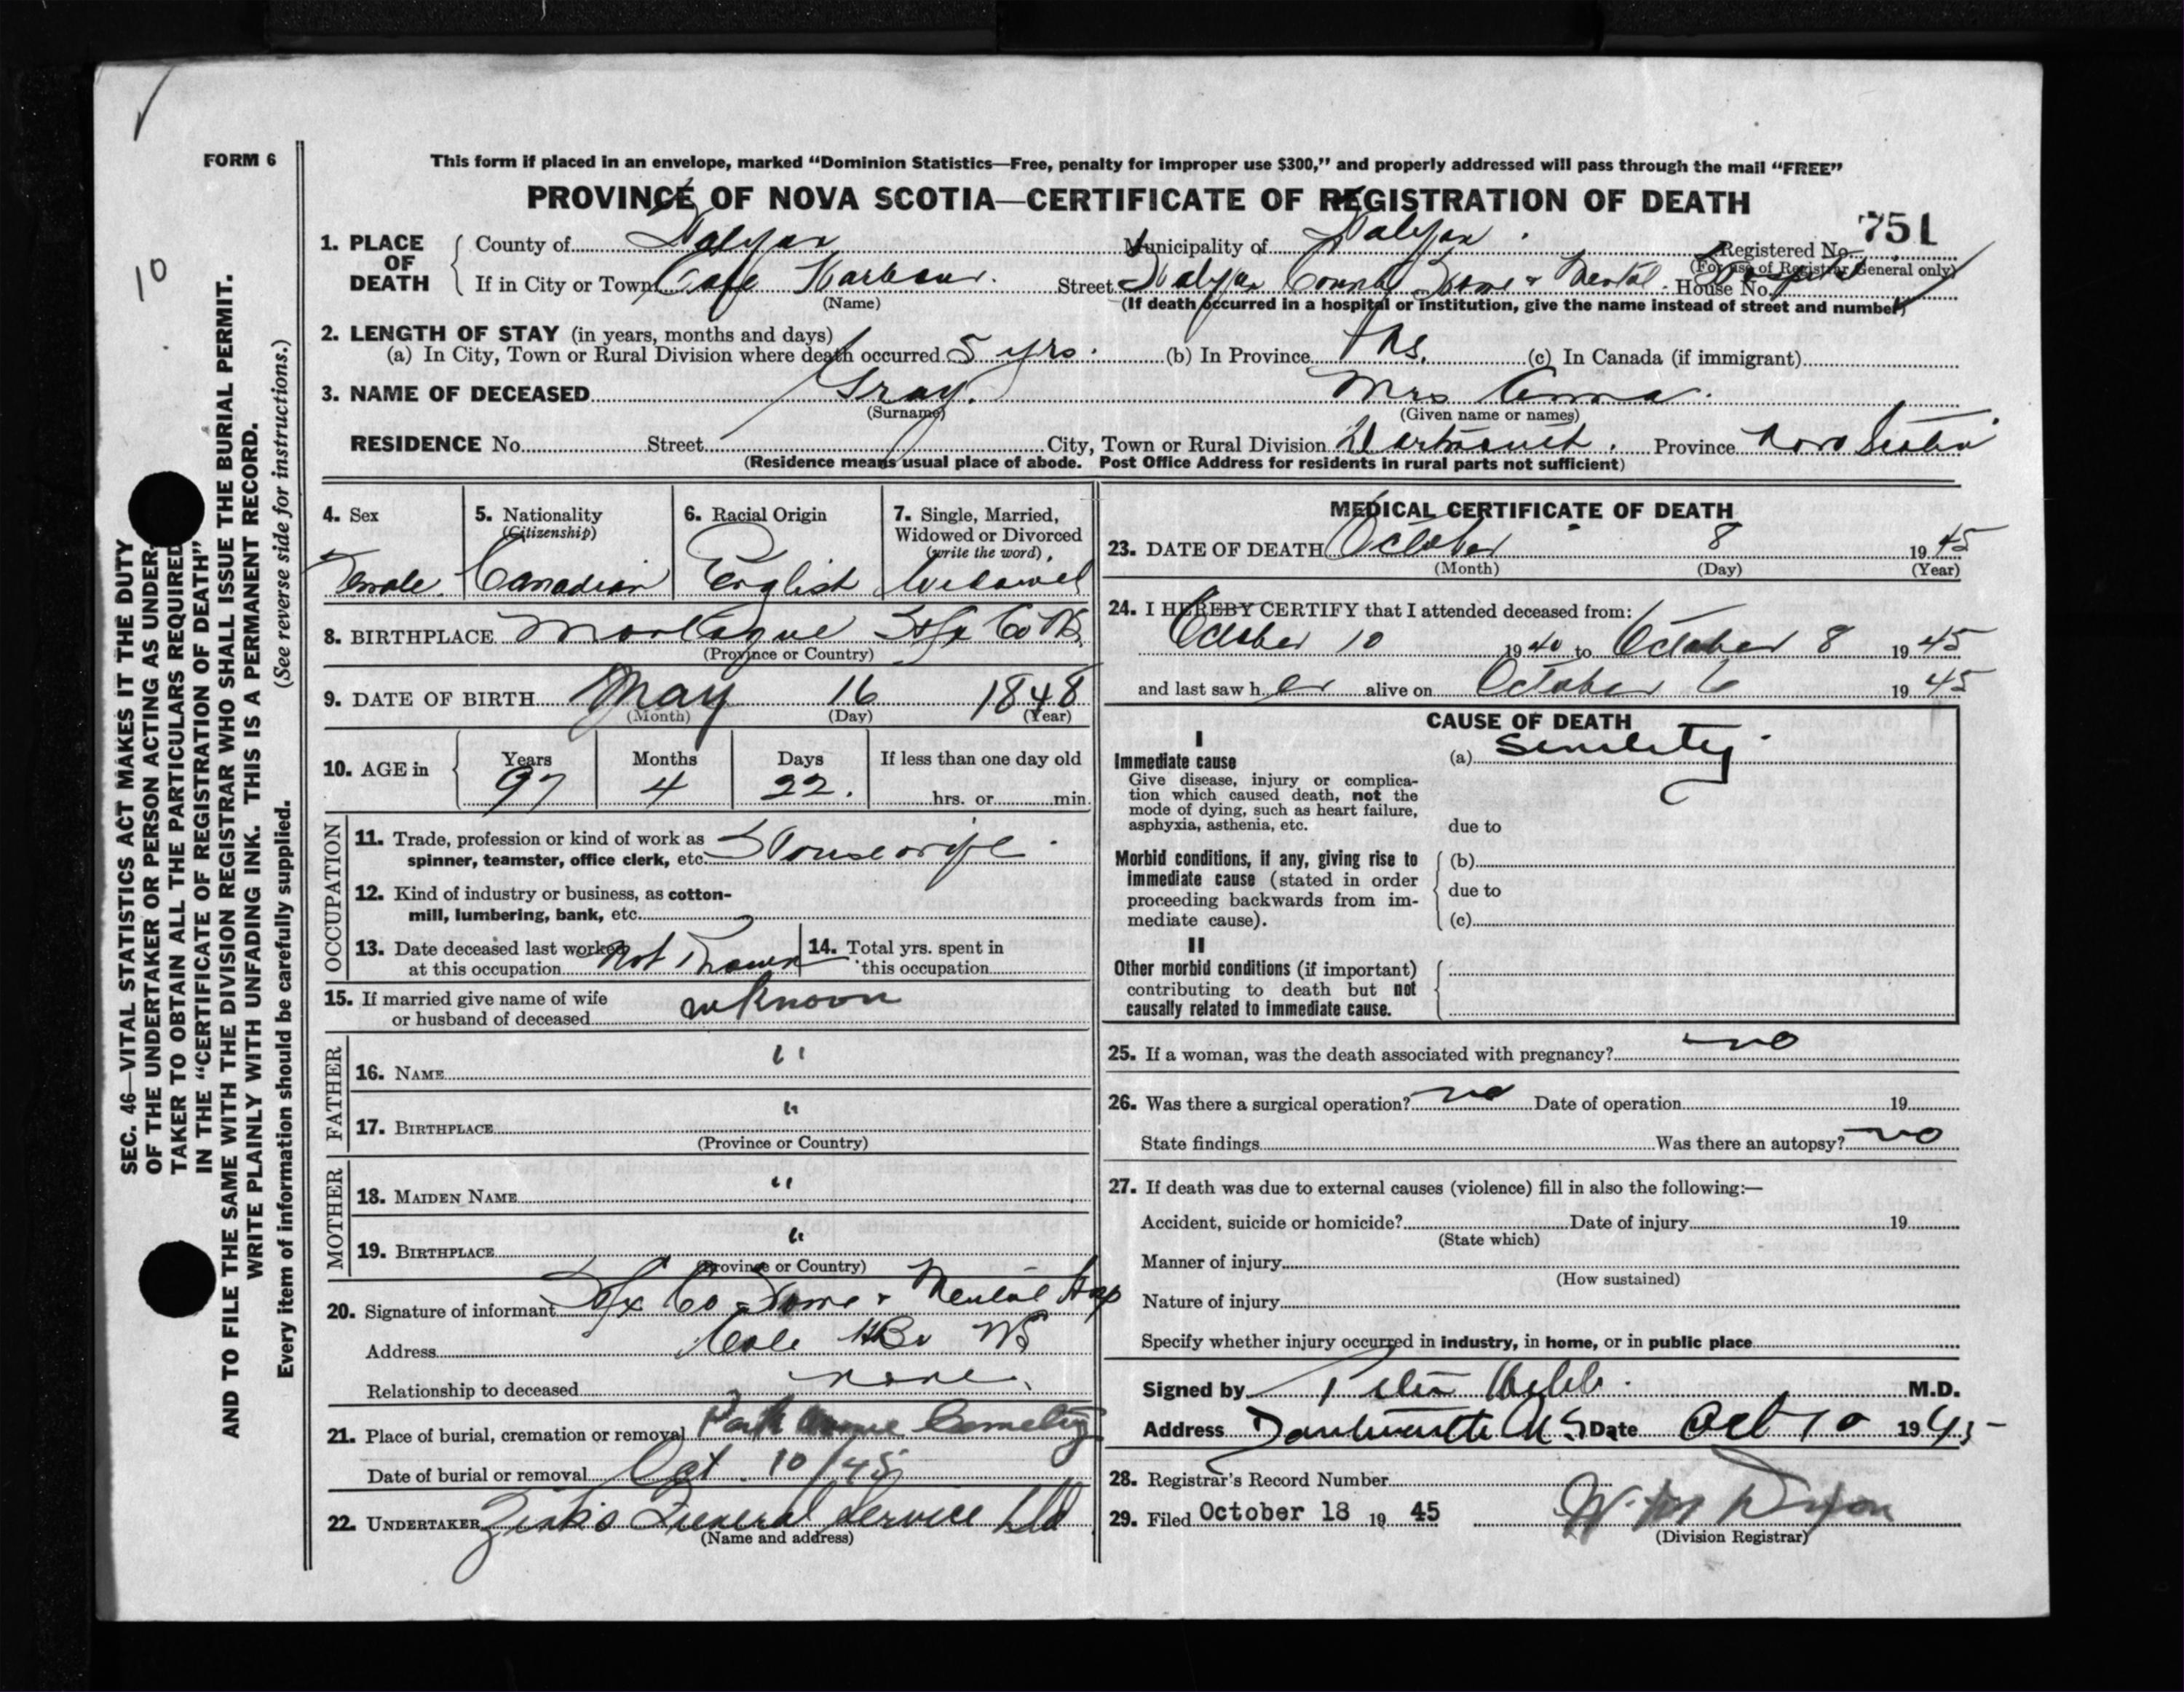 FORM 6
This form if placed in an envelope, marked “Dominion Statistics—Free, penalty for improper use $300,” and properly addressed will pass through the mail “FREE”
PROVINCE OF NOVA SCOTIA—CERTIFICATE OF REGISTRATION OF DEATH
751
1. PLACE OF DEATH
County of Halifax Municipality of Halifax Registered No.
(For use of Registrar General only)
If in City or Town Cole Harbour. Street Halifax County Home & Mental Hospital House No.
(Name)
(If death occurred in a hospital or institution, give the name instead of street and number)
2. LENGTH OF STAY (in years, months and days)
(a) In City, Town or Rural Division where death occurred 5 yrs. (b) In Province (c) In Canada (if immigrant)
3. NAME OF DECEASED Gray. Mrs Anna.
(Surname) (Given name or names)
RESIDENCE No. Street City, Town or Rural Division Dartmouth. Province Nova Scotia
(Residence means usual place of abode. Post Office Address for residents in rural parts not sufficient)
4. Sex
Female.
5. Nationality
(Citizenship)
Canadian
6. Racial Origin
English
7. Single, Married,
Widowed or Divorced
(write the word)
Widowed
8. BIRTHPLACE Montague Hfx Co NS
(Province or Country)
9. DATE OF BIRTH May 16 1848
(Month) (Day) (Year)
10. AGE in
Years Months Days If less than one day old
97 4 22. hrs. or min.
OCCUPATION
11. Trade, profession or kind of work as
spinner, teamster, office clerk, etc. Housewife
12. Kind of industry or business, as cotton-
mill, lumbering, bank, etc.
13. Date deceased last worked
at this occupation Not Known
14. Total yrs. spent in
this occupation
15. If married give name of wife
or husband of deceased unknown
FATHER
16. NAME "
17. BIRTHPLACE "
(Province or Country)
MOTHER
18. MAIDEN NAME "
19. BIRTHPLACE "
(Province or Country)
20. Signature of informant Hfx Co Home & Mental Hosp
Address Cole Hbr NS
Relationship to deceased none.
21. Place of burial, cremation or removal Cemetery
Date of burial or removal Oct. 10/45
22. UNDERTAKER Zink's Funeral Service Ltd
(Name and address)
MEDICAL CERTIFICATE OF DEATH
23. DATE OF DEATH October 8 1945
(Month) (Day) (Year)
24. I HEREBY CERTIFY that I attended deceased from:
October 10 1940 to October 8 1945
and last saw her alive on October 6 1945
CAUSE OF DEATH
I
Immediate cause
(a) Senility
Give disease, injury or complica-
tion which caused death, not the
mode of dying, such as heart failure,
asphyxia, asthenia, etc.
due to
Morbid conditions, if any, giving rise to
immediate cause (stated in order
proceeding backwards from im-
mediate cause).
(b)
due to
(c)
II
Other morbid conditions (if important)
contributing to death but not
causally related to immediate cause.
25. If a woman, was the death associated with pregnancy? no
26. Was there a surgical operation? no Date of operation 19
State findings Was there an autopsy? no
27. If death was due to external causes (violence) fill in also the following:—
Accident, suicide or homicide? Date of injury 19
(State which)
Manner of injury
(How sustained)
Nature of injury
Specify whether injury occurred in industry, in home, or in public place
Signed by Webb. M.D.
Address N S Date Oct 10 1945
28. Registrar's Record Number
29. Filed October 18 1945
(Division Registrar)
SEC. 46—VITAL STATISTICS ACT MAKES IT THE DUTY
OF THE UNDERTAKER OR PERSON ACTING AS UNDER-
TAKER TO OBTAIN ALL THE PARTICULARS REQUIRED
IN THE “CERTIFICATE OF REGISTRATION OF DEATH”
AND TO FILE THE SAME WITH THE DIVISION REGISTRAR WHO SHALL ISSUE THE BURIAL PERMIT.
WRITE PLAINLY WITH UNFADING INK. THIS IS A PERMANENT RECORD.
(See reverse side for instructions.)
Every item of information should be carefully supplied.
10